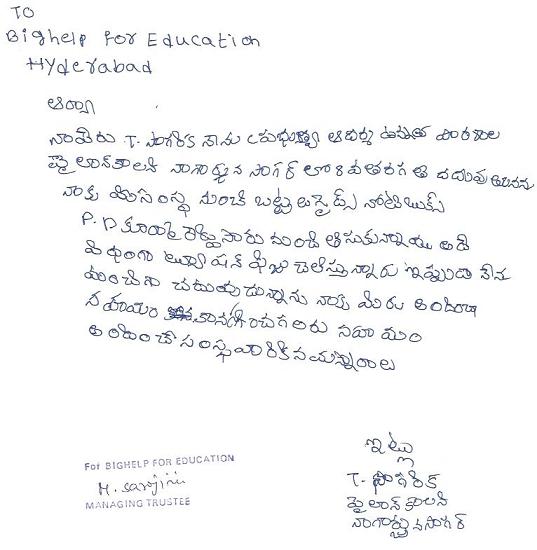 TO
Bighelp For Education
Hyderabad
ఆర్యా
నాపేరు T. సాగరిక నాను ప్రభుత్వ ఆదర్శ పాఠశాల
పైలాన్ కాలని నాగార్జున సాగర్ లో 8 వతరగతి చదువు
నాకు మీసంస్థ నుంచి బట్టలు నోట్‌బుక్స్
P. D సారు నుండి తీసుకున్నాను అదే
విధంగా ట్యూషన్ ఫీజు చెలిస్తున్నారు ఇప్పుడు నేను
మంచిగా చదువుచున్నాను నాకు మీరు అందించా
సహాయం సహాయం
అందించే సంస్థవారికి నమస్కారాలు
ఇట్లు
T. సాగరిక
పైలాన్ కాలని
నాగార్జునసాగర్
For BIGHELP FOR EDUCATION
M. Sarojini
MANAGING TRUSTEE